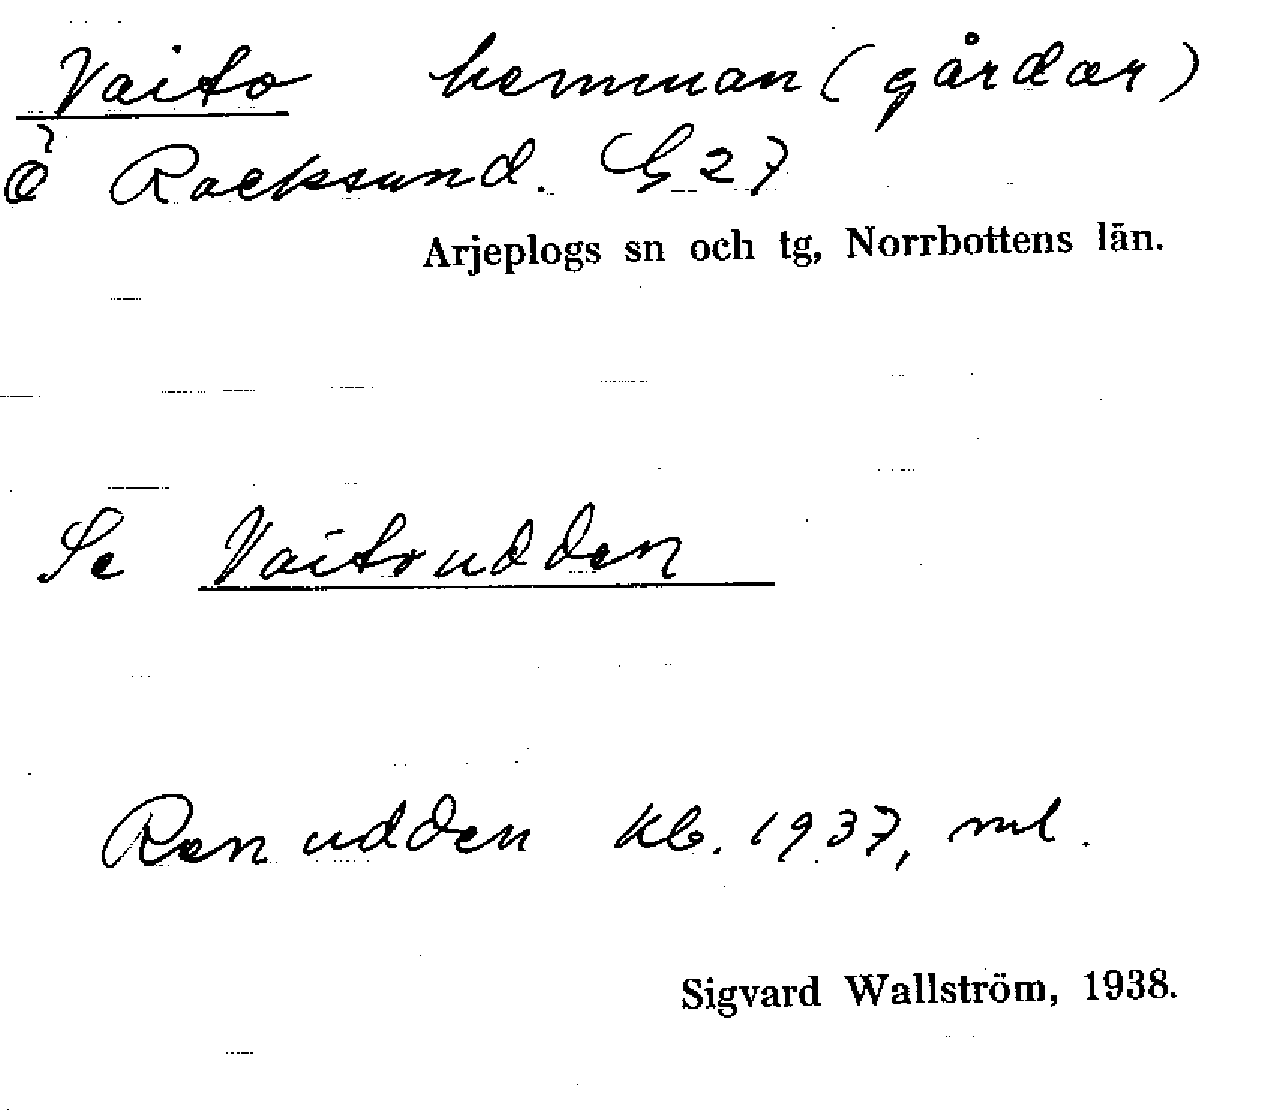 Vaito hemman (gårdar)
Racksund. G 27
Arjeplogs sn och tg, Norrbottens län.
Se Vaitoudden
Renudden kb. 1937, ml.
Sigvard Wallström, 1938.